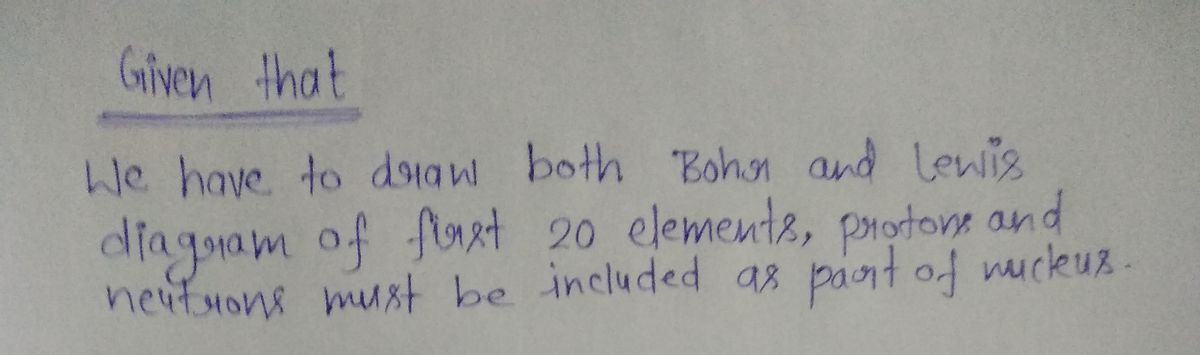 Given that
We have to draw both Bohr and Lewis
diagram of first 20 elements, protons and
neutrons must be included as part of nucleus.